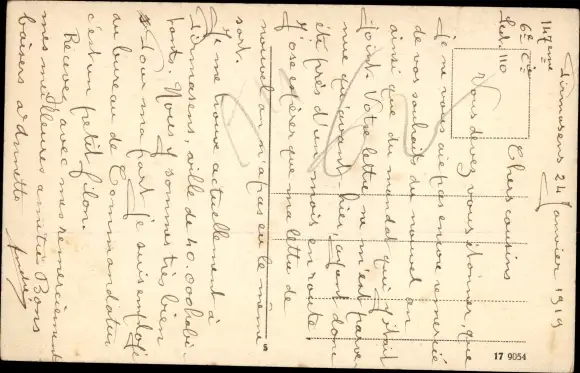 Pirmasens 24 Janvier 1919
147eme
6e Cie
Sect. 110
Chers cousins
Vous devez vous étonner, que
Je ne vous aie pas encore remercié
de vos souhaits du nouvel an
ainsi que du mandat qui y était
joint. Votre lettre ne m'est parve-
nue qu'avant hier, ayant donc
été près d'un mois en route
J'ose espérer que ma lettre de
nouvel an n'a pas eu le même
sort.
Je me trouve actuellement à
Pirmasens, ville de 40.000 habi-
tants. Nous y sommes très bien
Pour ma part je suis employé
au bureau de Commandature
c'est un petit filon.
Recevez avec mes remerciements
mes meilleures amitiés Bons
baisers à
17 9054